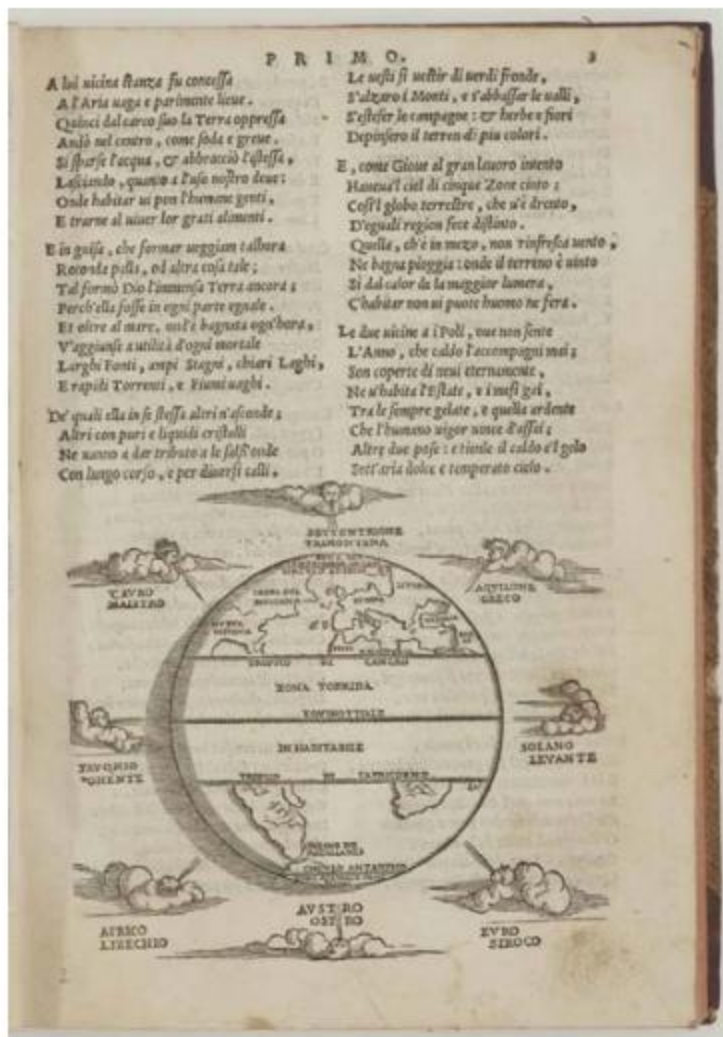 PRIMO.
3
A lui uicina stanza fu concessa
A l'Aria uaga e parimente lieue.
Quinci dal carco suo la Terra oppressa
Andò nel centro, come soda e greue.
Si sparse l'acqua, & abbracciò l'istessa,
Lasciando, quanto a l'uso nostro deue:
Onde habitar ui pon l'humane genti,
E trarne al uiuer lor grati alimenti.
E in guisa, che formar ueggiam talhora
Rotonda palla, od altra cosa tale;
Tal formò Dio l'immensa Terra ancora;
Perch'ella fosse in ogni parte eguale.
Et oltre al mare, ond'è bagnata ogn'hora,
V'aggiunse a utilità d'ogni mortale
Larghi Fonti, ampi Stagni, chiari Laghi,
E rapidi Torrenti, e Fiumi uaghi.
De' quali ella in se stessa altri n'asconde;
Altri con puri e liquidi cristalli
Ne uanno a dar tributo a le sals'onde
Con lungo corso, e per diuersi calli.
Le uesti si uestir di uerdi fronde,
S'alzaro i Monti, e s'abbassar le ualli,
S'estefer le campagne: & herbe e fiori
Depinsero il terren di piu colori.
E, come Gioue al gran lauoro intento
Haueua'l ciel di cinque Zone cinto;
Cosi'l globo terrestre, che u'è drento,
D'eguali region fece distinto.
Quella, ch'è in mezo, non rinfresca uento,
Ne bagna pioggia: onde il terreno è uinto
Si dal calor de la maggior lumera,
C'habitar non ui puote huomo ne fera.
Le due uicine a i Poli, oue non sente
L'Anno, che caldo l'accompagni mai;
Son coperte di neui eternamente,
Ne u'habita l'Estate, e i mesi gai,
Tra le sempre gelate, e quella ardente
Che l'humano uigor uince d'assai;
Altre due pose: e tienle il caldo e'l gelo
Sott'aria dolce e temperato cielo.
SETTENTRIONE
TRAMONTANA
CAVRO
MAESTRO
AQVILONE
GRECO
EVROPA
TROPICO DI CANCRO
ZONA TORRIDA
EQVINOTTIALE
INHABITABILE
TROPICO DI CAPRICORNO
FAVONIO
PONENTE
SOLANO
LEVANTE
CIRCVLO ANTARTICO
AVSTRO
OSTRO
AFRICO
LIBECHIO
EVRO
SIROCO